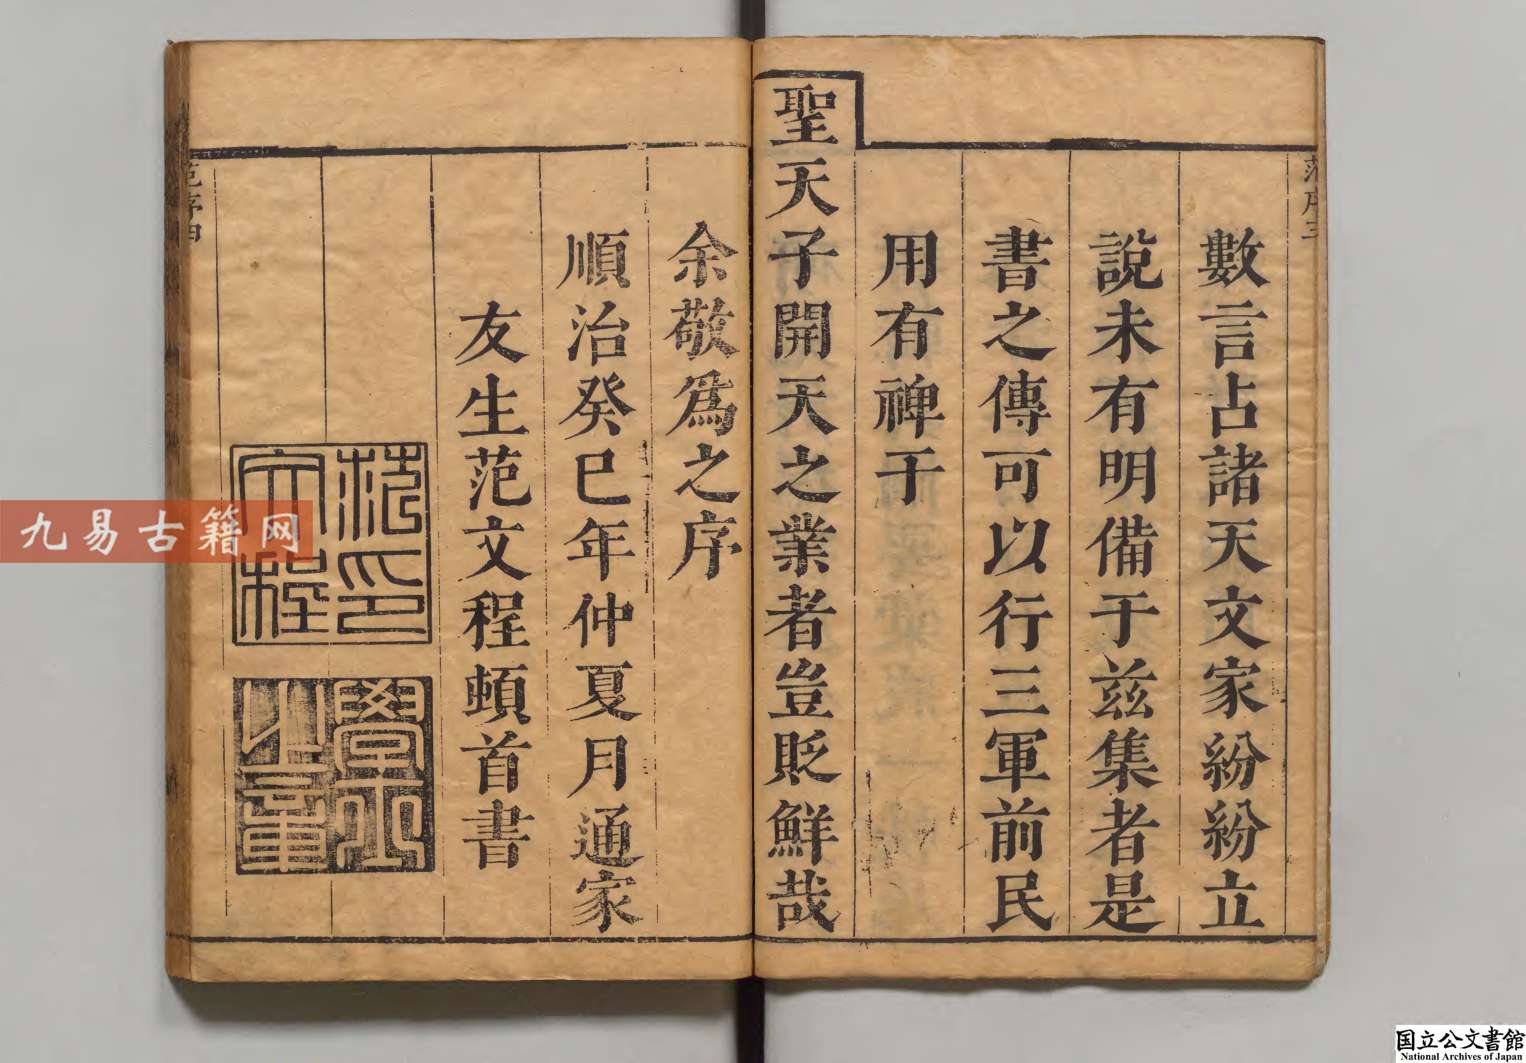 數言占諸天文家紛紛立
說未有明備于兹集者是
書之傳可以行三軍前民
用有禆于
聖天子開天之業者豈貶鮮哉
余敬爲之序
順治癸巳年仲夏月通家
友生范文程頓首書
范印
文程
之章
范序三
范序四
九易古籍网
国立公文書館
National Archives of Japan